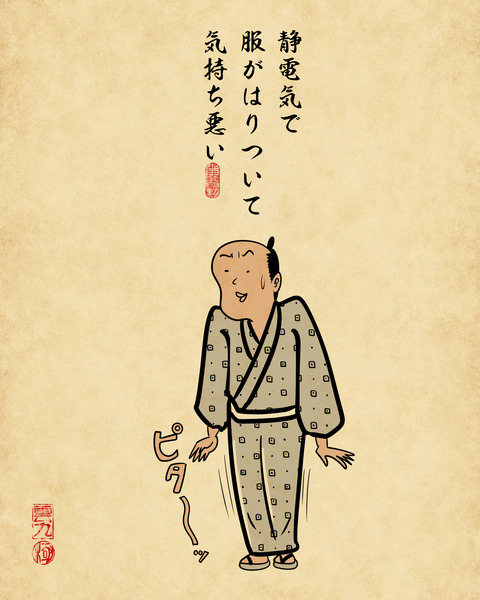 静電気で
服がはりついて
気持ち悪い
ピタ〜ッ